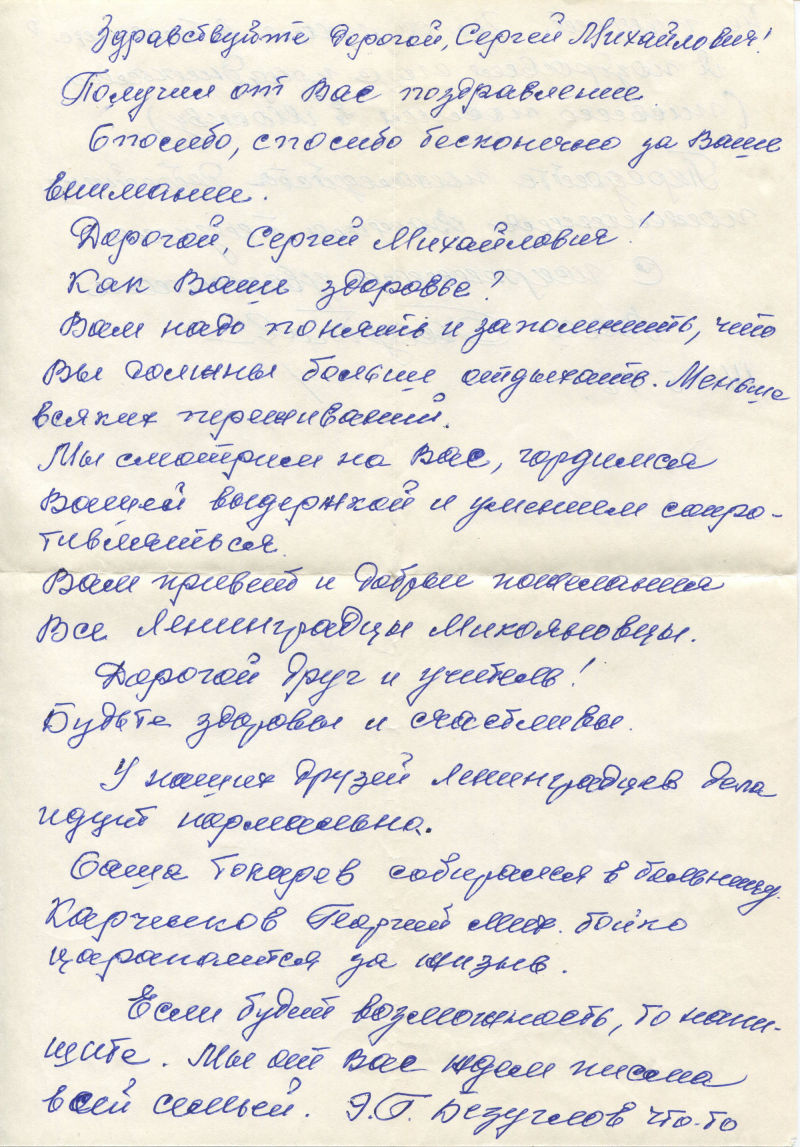 Здравствуйте Дорогой, Сергей Михайлович!
Получил от Вас поздравление
Спасибо, спасибо бесконечно за Ваше
внимание.
Дорогой, Сергей Михайлович!
Как Ваше здоровье?
Вам надо понять и запомнить, что
Вы должны больше отдыхать. Меньше
всяких переживаний.
Мы смотрим на Вас, гордимся
Вашей выдержкой и умением сопро-
тивляться.
Вам привет и добрые пожелания
Все Ленинградцы Микояновцы.
Дорогой друг и учитель!
Будьте здоровы и счастливы.
У наших друзей Ленинградцев дела
идут нормально.
Саша Токарев собирался в больницу.
Харченков Георгий Мих. бойко
царапается за жизнь.
Если будет возможность, то напи-
шите. Мы от Вас ждем письма
всей семьей. Э.Г. Безуглов что-то